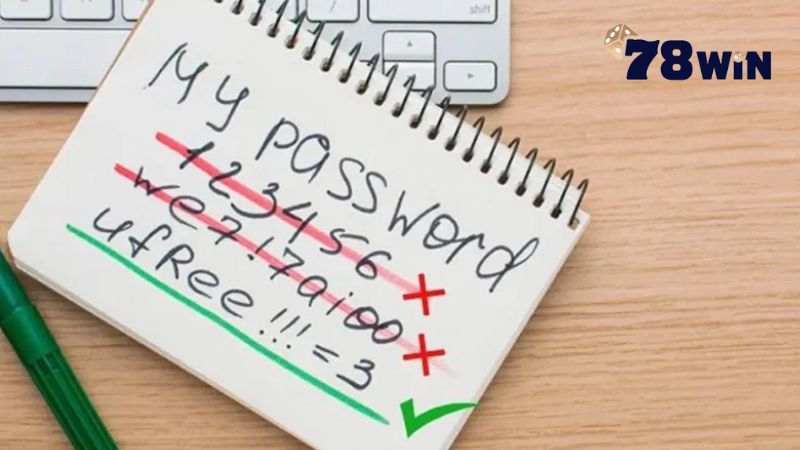 shift
78WIN
My password
123456
we7!7aioo
4fRee!!!=3